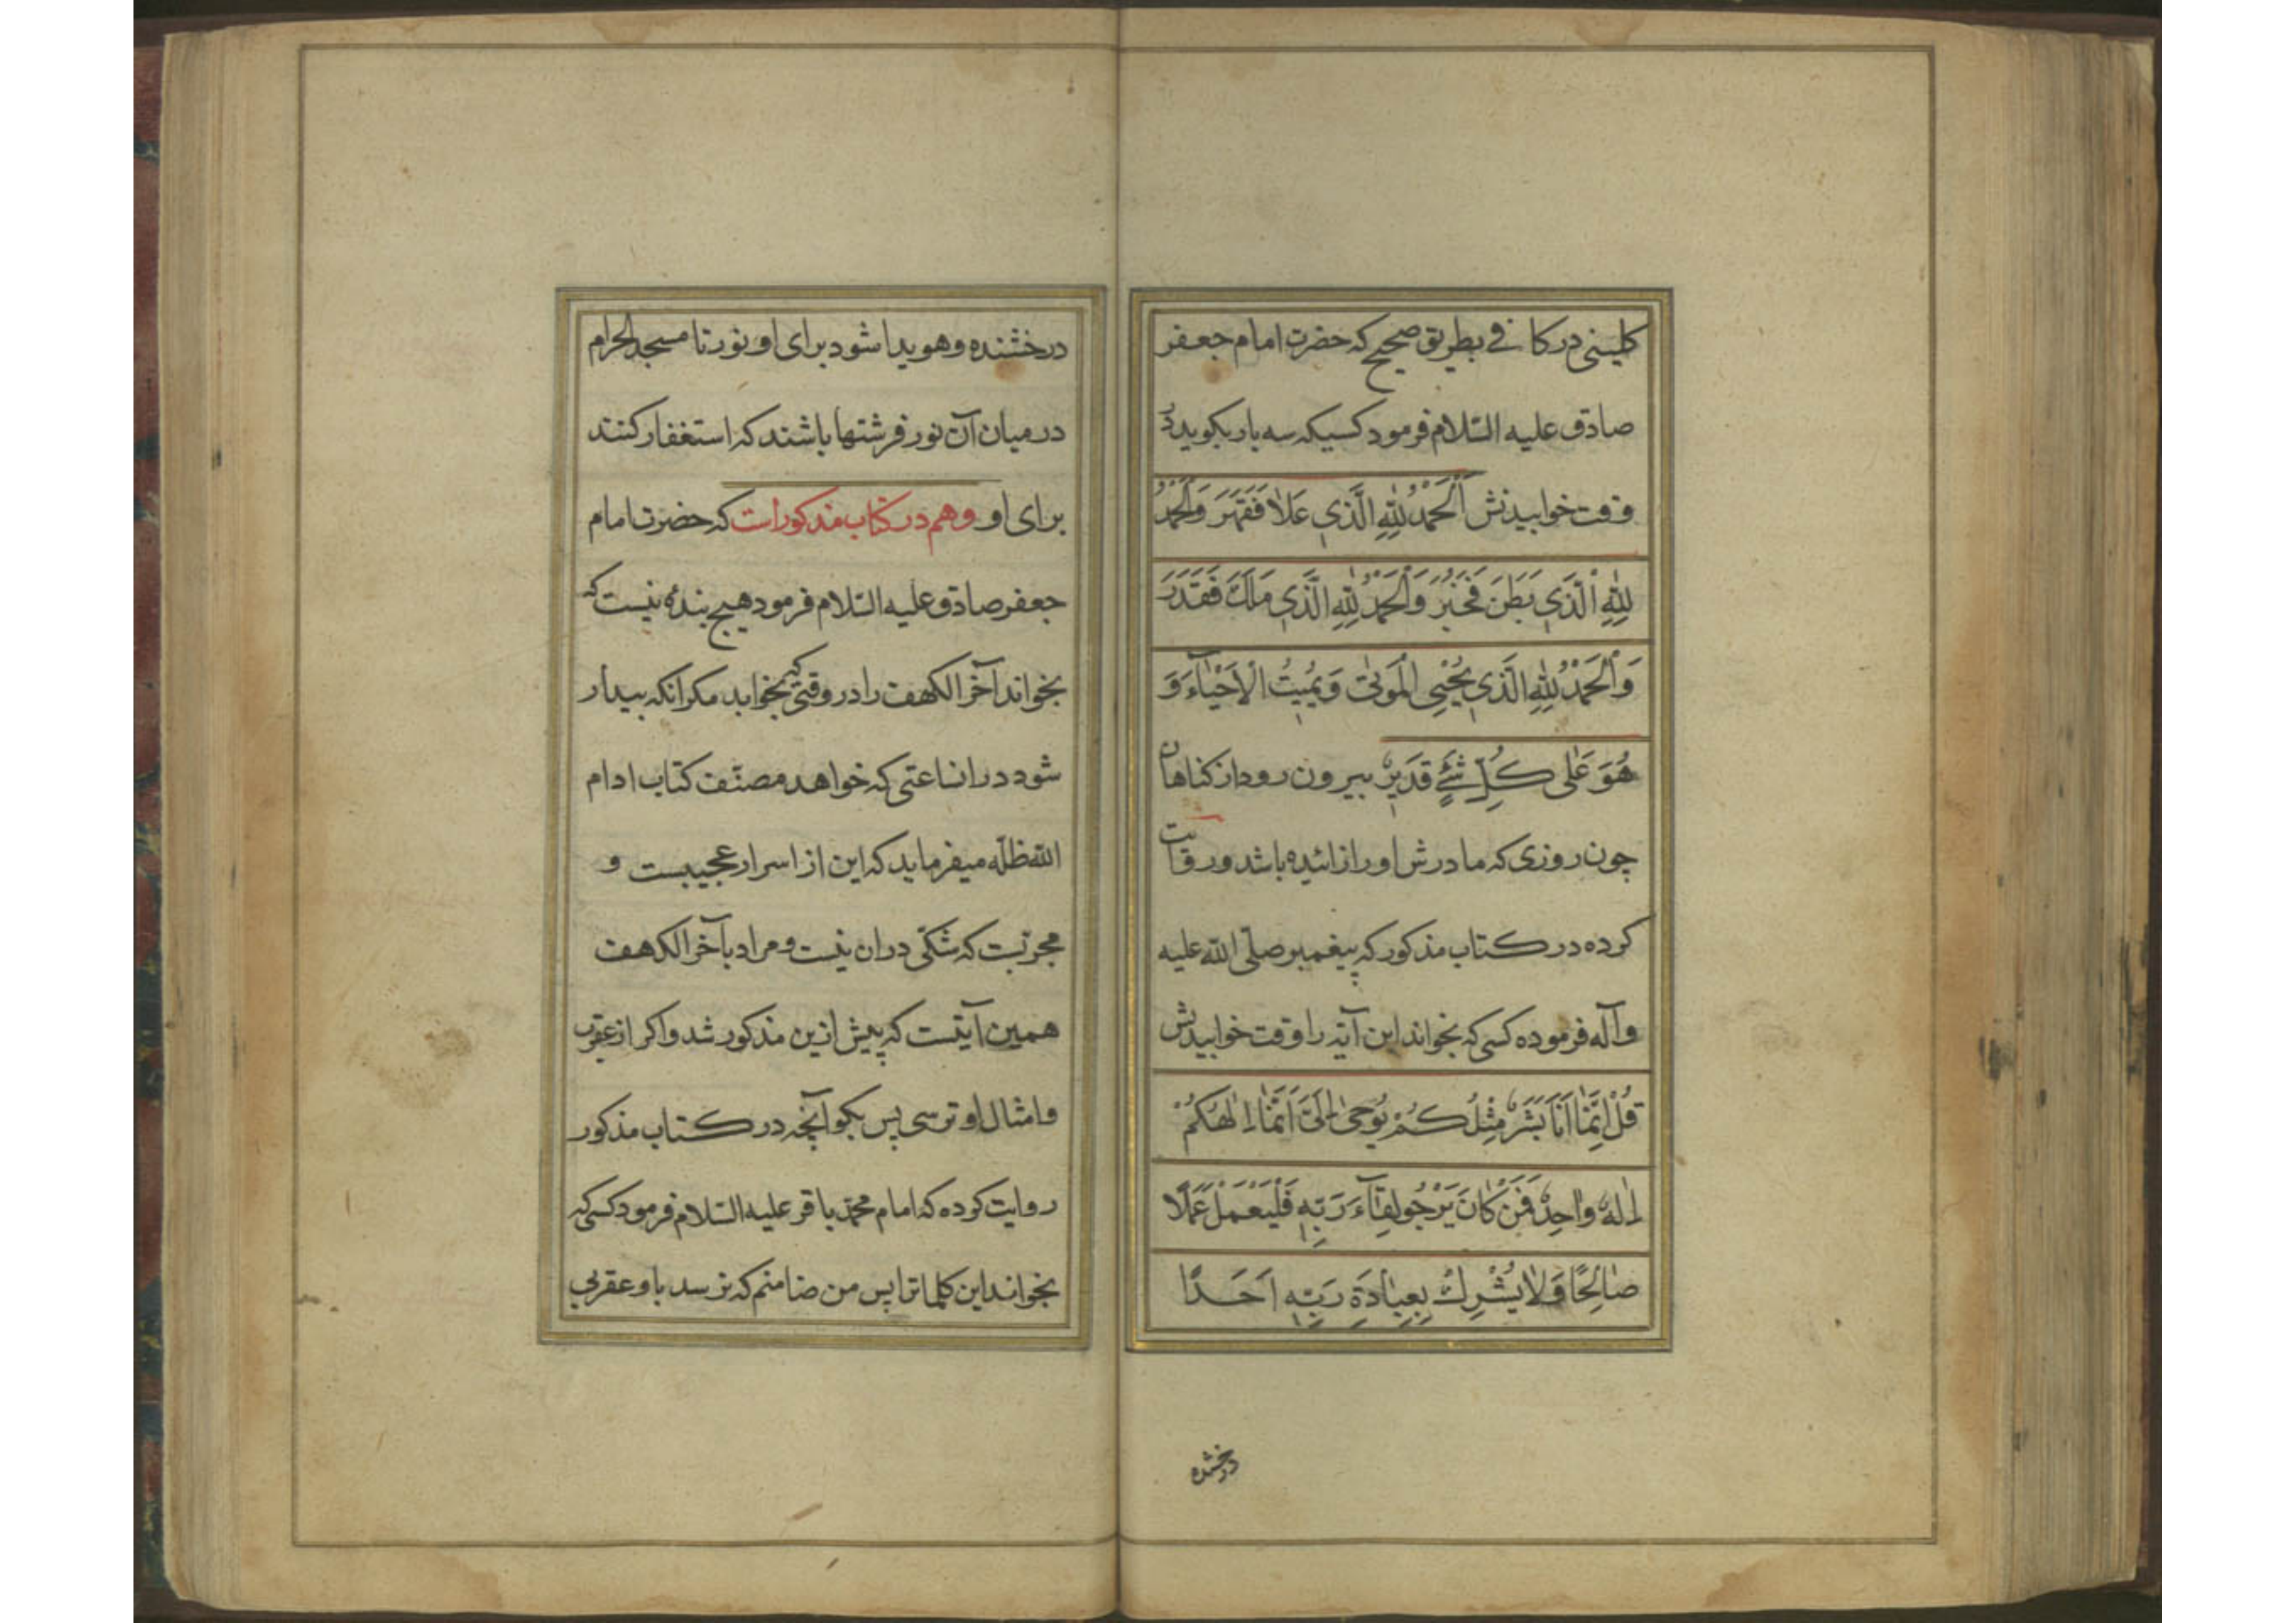 کلینی در کافی بطریق صحیح که حضرت امام جعفر
صادق علیه السّلام فرمود کسیکه سه بار بکوید در
وقت خوابیدنش اَلْحَمْدُ لِلّٰهِ الَّذی عَلَا فَقَهَرَ وَالْحَمْدُ
لِلّٰهِ الَّذی بَطَنَ فَخَبَرَ وَالْحَمْدُ لِلّٰهِ الَّذی مَلَکَ فَقَدَرَ
وَالْحَمْدُ لِلّٰهِ الَّذی یُحْیِی الْمَوْتٰی وَیُمیتُ الْاَحْیٰآءَ وَ
هُوَ عَلٰی کُلِّ شَیْءٍ قَدیرٌ بیرون رود از کناهان
چون روزی که مادرش او را زائیده باشد و روایت
کرده در کتاب مذکور که پیغمبر صلّی اللّه علیه
وآله فرموده کسی که بخواند این آیه را وقت خوابیدنش
قُلْ اِنَّمٰا اَنَا بَشَرٌ مِثْلُکُمْ یُوحٰی اِلَیَّ اَنَّمٰا اِلٰهُکُمْ
اِلٰهٌ وٰاحِدٌ فَمَنْ کٰانَ یَرْجُو لِقٰآءَ رَبِّهِ فَلْیَعْمَلْ عَمَلًا
صٰالِحًا وَلٰا یُشْرِكْ بِعِبٰادَةِ رَبِّهِ اَحَدًا
درخشنده
درخشنده و هویدا شود برای او نور تا مسجد الحرام
در میان آن نور فرشتها باشند که استغفار کنند
برای او وهم در کتاب مذکور است که حضرت امام
جعفر صادق علیه السّلام فرمود هیچ بندۀ نیست که
بخواند آخر الکهف را در وقتی که بخوابد مکر انکه بیدار
شود در ان ساعتی که خواهد مصنّف کتاب ادام
اللّه ظلّه میفرماید که این از اسرار عجیبست و
مجربست که شکّی در ان نیست و مراد بآخر الکهف
همین آیتست که پیش ازین مذکور شد و اکر از عقرب
و امثال او ترسی پس بکو آنچه در کتاب مذکور
روایت کرده که امام محمّد باقر علیه السّلام فرمود کسی که
بخواند این کلماترا پس من ضامنم که نرسد باو عقربی